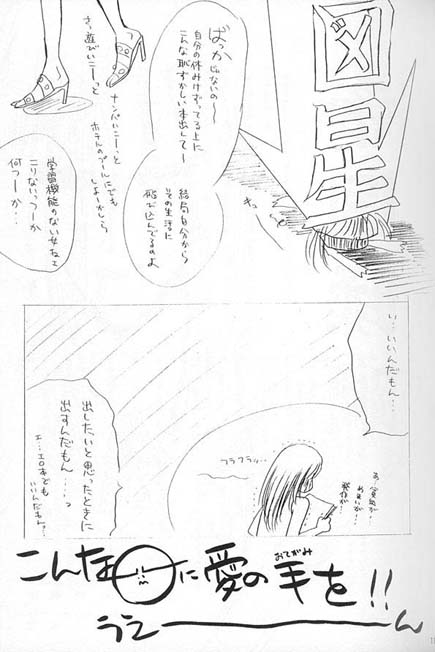 図星
ばっかじゃないの〜
自分の体みけずってる上に
こんな恥ずかしい本出して〜
結局自分から
その生活に
飛び込んでるのよ
さっ遊びいこーっと
ナンパいこーっと
ホテルのプールにでも
しよーかしら
学習機能のない女ねェ
こりないっつーか
何つーか…
い…いいんだもん…
フラフラッ…
あ、貧血が…
めまいが…
出したいと思ったときに
出すんだもん…っ
エ…エロ本でも
いいんだもんっ
こんな
に愛の手を!!
おてがみ
うえーーーん